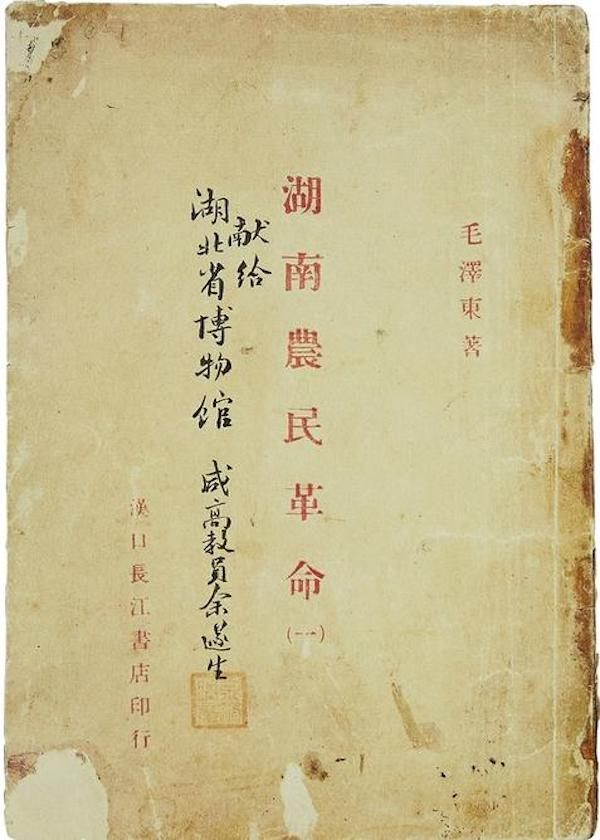 毛澤東著
湖南農民革命
(一)
献给
湖北省博物馆
咸高教员余遂生
漢口長江書店印行